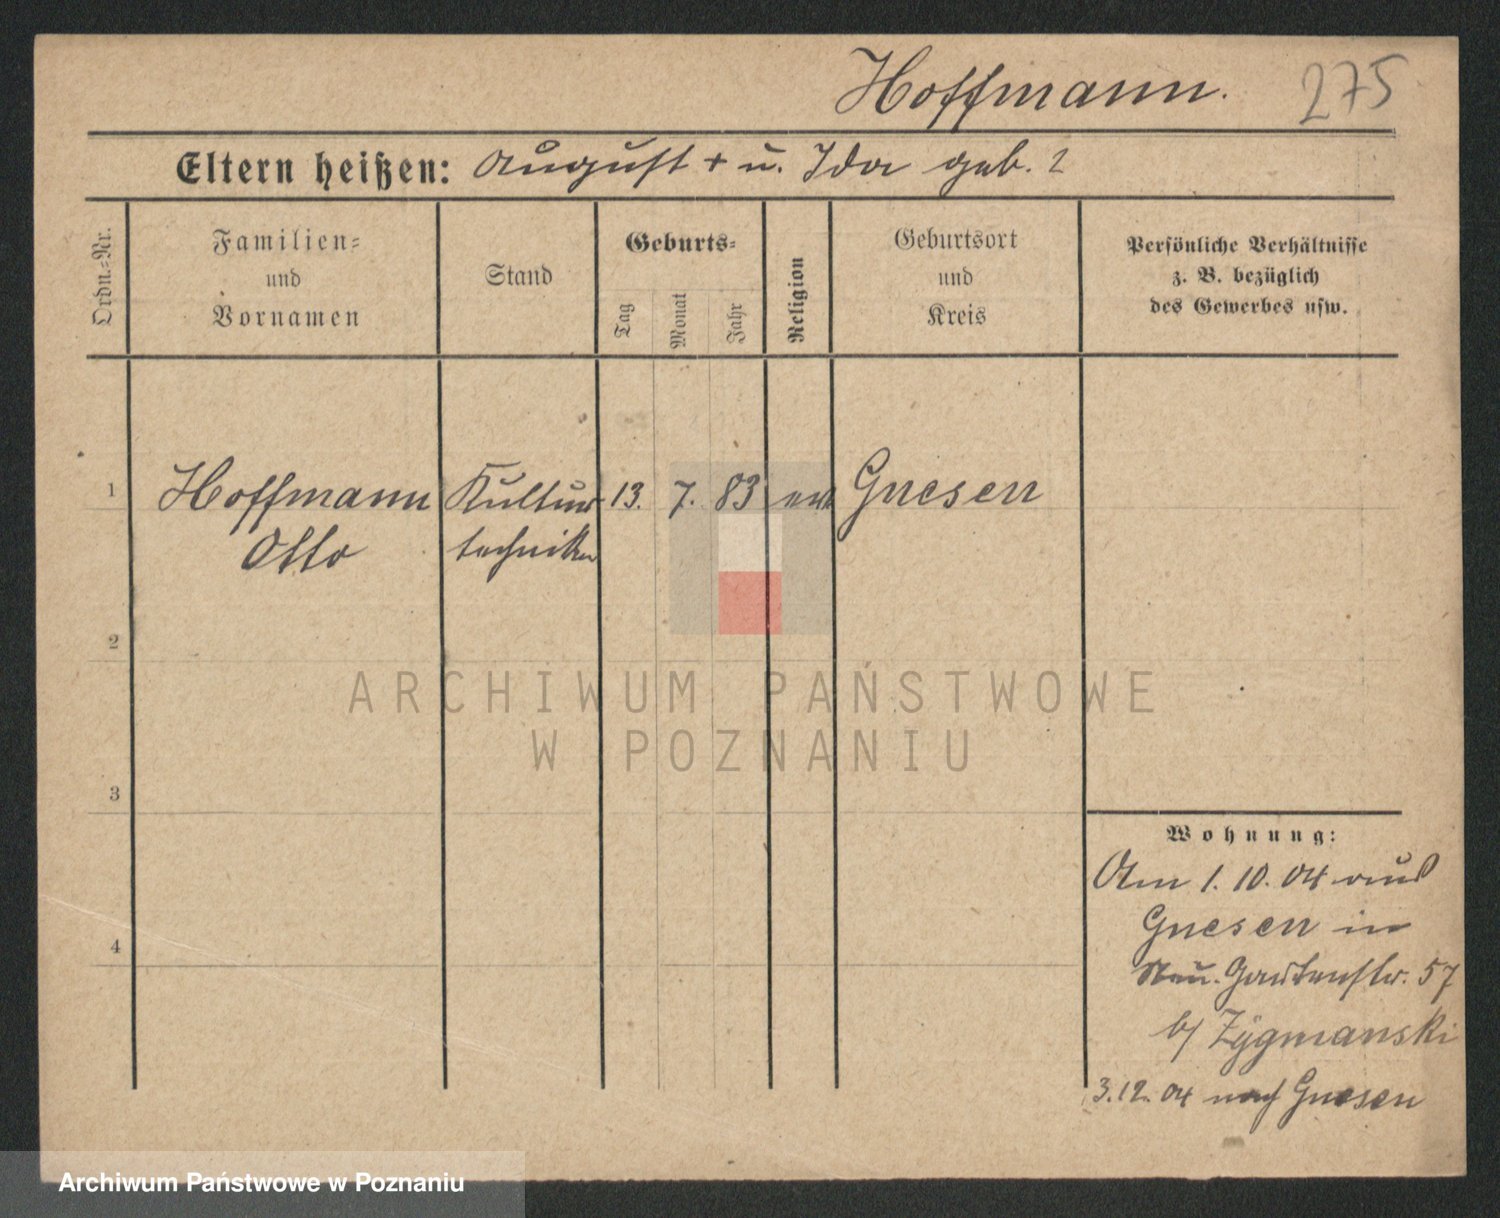 Hoffmann. 275
Eltern heißen: August + u. Ida geb. ?
Ordn.-Nr.
Familien-
und
Vornamen
Stand
Geburts-
Tag
Monat
Jahr
Religion
Geburtsort
und
Kreis
Persönliche Verhältnisse
z. B. bezüglich
des Gewerbes usw.
1 Hoffmann Kultur 13. 7. 83 Gnesen
Otto techniker
2
3
4
Wohnung:
Am 1. 10. 04 aus
Gnesen in
Neu. Gartenstr. 57
b/ Zygmanski
3. 12. 04 nach Gnesen
ARCHIWUM PAŃSTWOWE
W POZNANIU
Archiwum Państwowe w Poznaniu